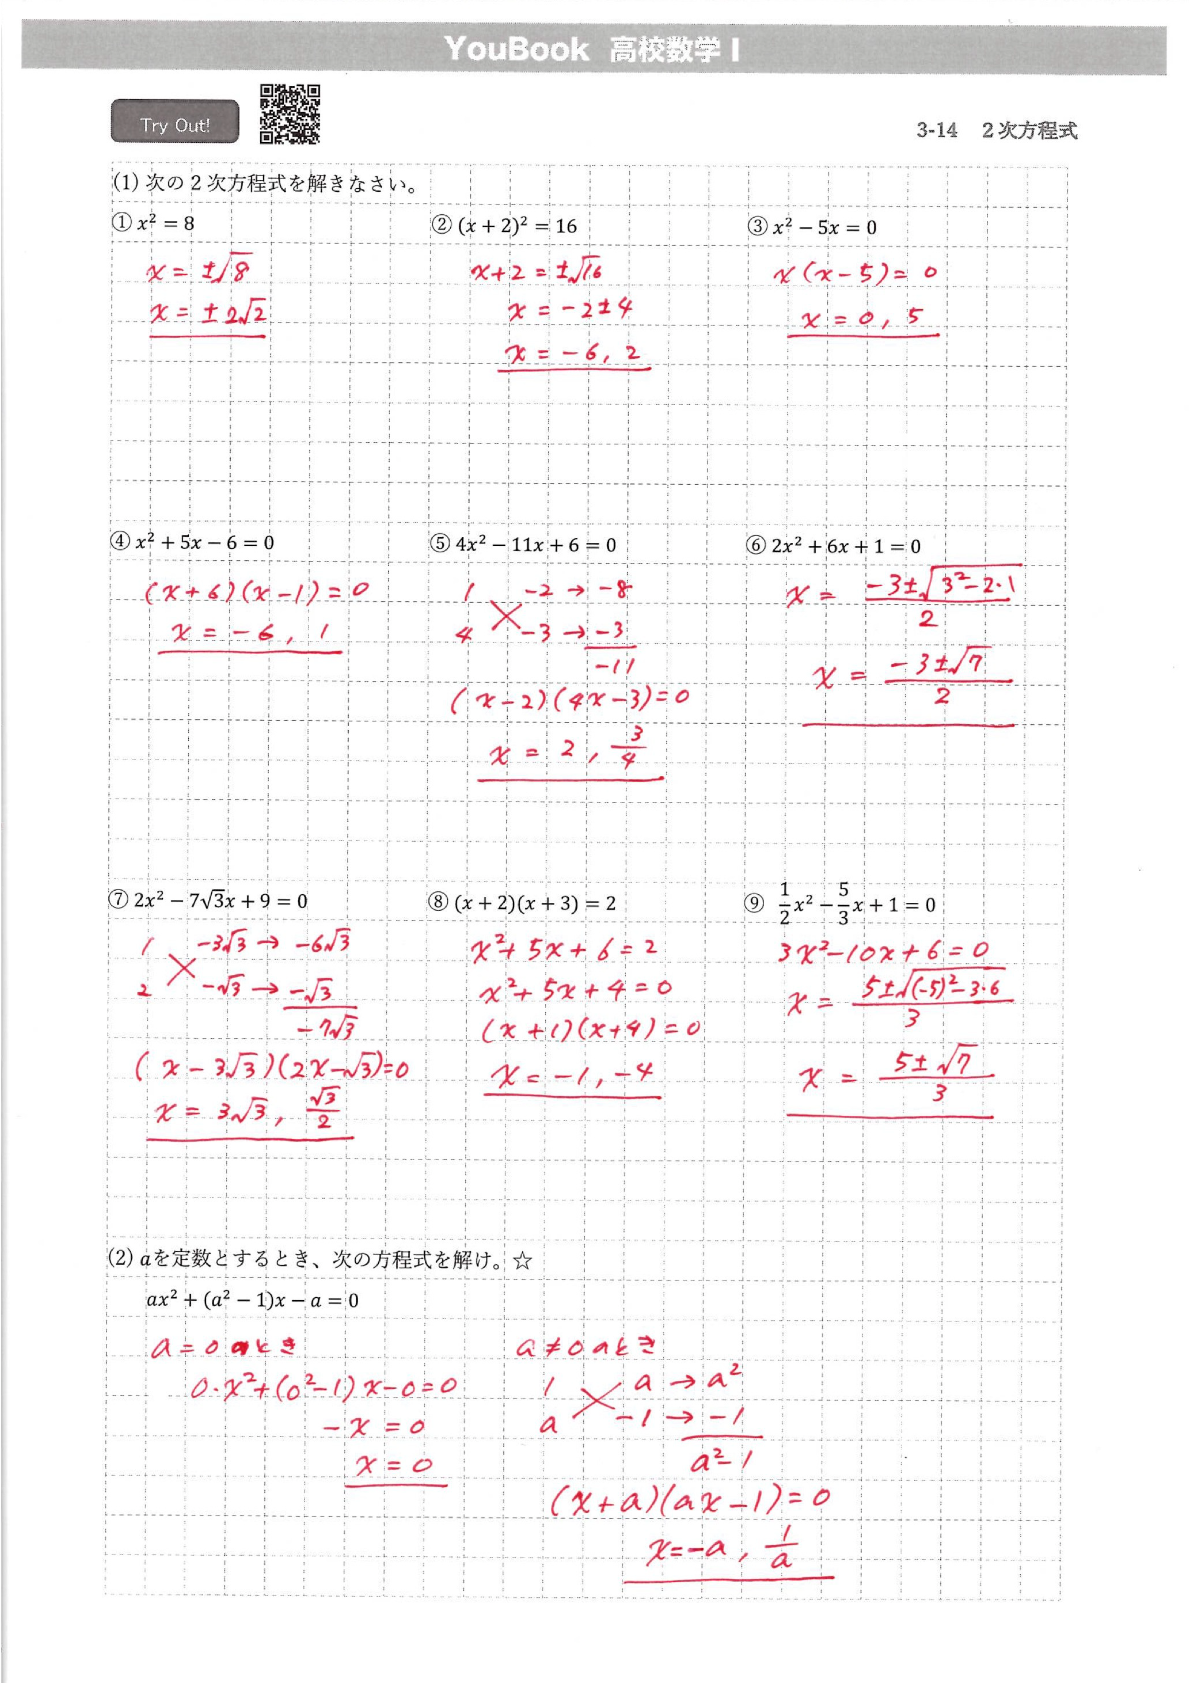 YouBook 高校数学 I
Try Out!
3-14 2次方程式
(1) 次の2次方程式を解きなさい。
① x² = 8
x = ±√8
x = ±2√2
② (x + 2)² = 16
x+2 = ±√16
x = -2±4
x = -6, 2
③ x² − 5x = 0
x(x-5) = 0
x = 0, 5
④ x² + 5x − 6 = 0
(x+6)(x-1) = 0
x = -6, 1
⑤ 4x² − 11x + 6 = 0
1 -2 → -8
4 -3 → -3
-11
(x-2)(4x-3)=0
x = 2, 3/4
⑥ 2x² + 6x + 1 = 0
x = (-3±√(3²-2·1))/2
x = (-3±√7)/2
⑦ 2x² − 7√3x + 9 = 0
1 -3√3 → -6√3
2 -√3 → -√3
-7√3
(x-3√3)(2x-√3)=0
x = 3√3, √3/2
⑧ (x + 2)(x + 3) = 2
x²+5x+6 = 2
x²+5x+4 = 0
(x+1)(x+4) = 0
x = -1, -4
⑨ 1/2x² − 5/3x + 1 = 0
3x²-10x+6 = 0
x = (5±√((-5)²-3·6))/3
x = (5±√7)/3
(2) aを定数とするとき、次の方程式を解け。☆
ax² + (a² − 1)x − a = 0
a = 0 のとき
0·x²+(0²-1)x-0=0
-x = 0
x = 0
a ≠ 0 のとき
1 a → a²
a -1 → -1
a²-1
(x+a)(ax-1)=0
x=-a, 1/a